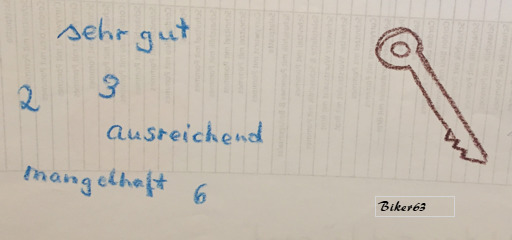 sehr gut
2 3
ausreichend
mangelhaft 6
Biker63